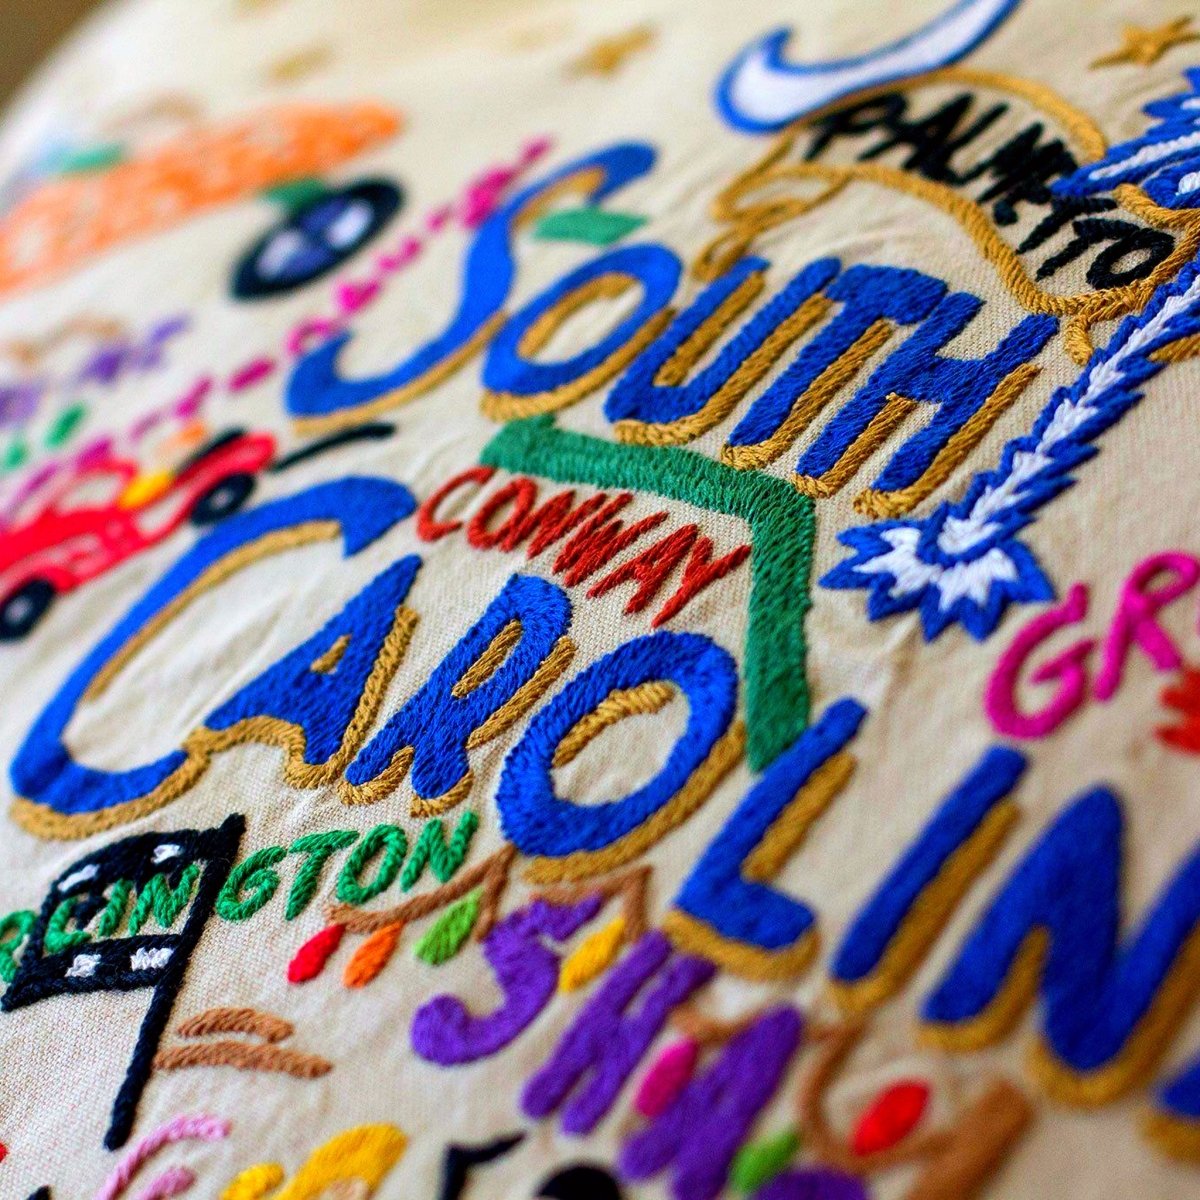 PALMETTO
SOUTH
CONWAY
CAROLIN
GR
LINGTON
SHA